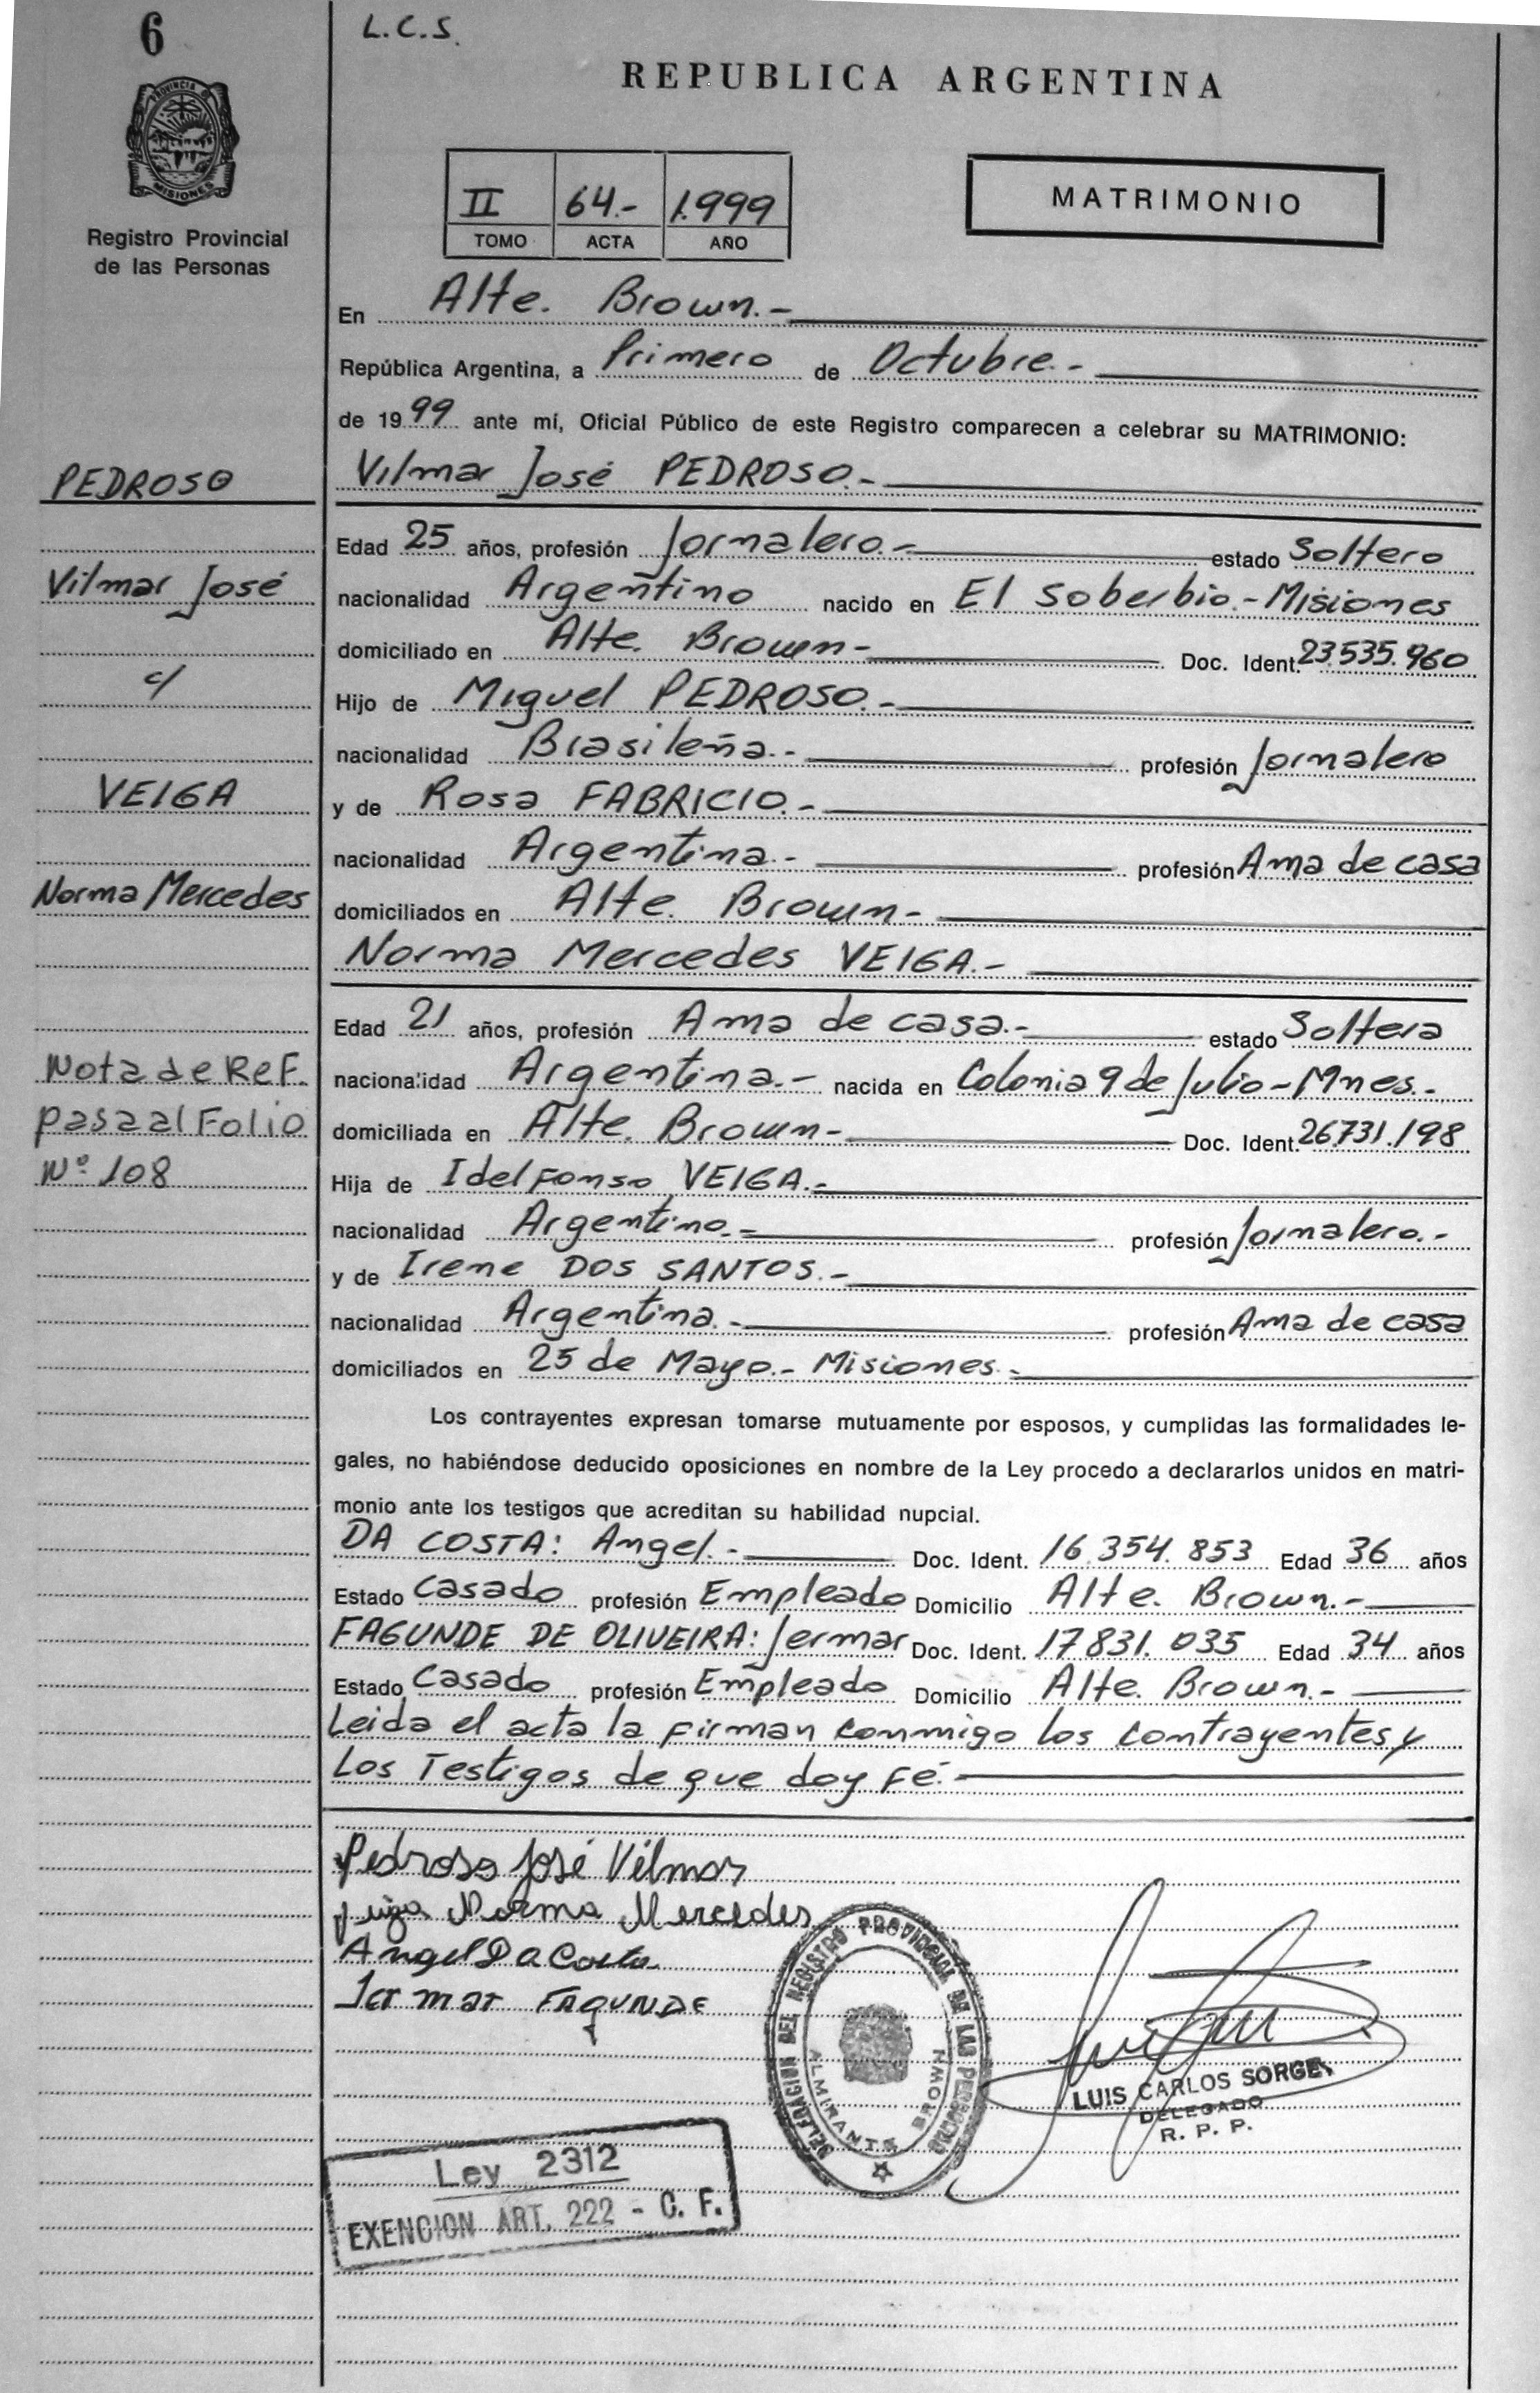 6
L.C.S.
REPUBLICA ARGENTINA
PROVINCIA DE
MISIONES
Registro Provincial
de las Personas
II 64.- 1.999
TOMO ACTA AÑO
MATRIMONIO
En Alte. Brown.-
República Argentina, a Primero de Octubre.-
de 1999 ante mí, Oficial Público de este Registro comparecen a celebrar su MATRIMONIO:
PEDROSO
Vilmar José PEDROSO.-
Edad 25 años, profesión Jornalero.- estado Soltero
Vilmar José
nacionalidad Argentino nacido en El Soberbio.-Misiones
domiciliado en Alte. Brown- Doc. Ident. 23.535.960
c/
Hijo de Miguel PEDROSO.-
nacionalidad Brasileña.- profesión Jornalero
VEIGA
y de Rosa FABRICIO.-
nacionalidad Argentina.- profesión Ama de casa
Norma Mercedes
domiciliados en Alte. Brown-
Norma Mercedes VEIGA.-
Edad 21 años, profesión Ama de casa.- estado Soltera
Nota de Ref.
nacionalidad Argentina.- nacida en Colonia 9 de Julio-Mnes.-
pasa al Folio
domiciliada en Alte. Brown- Doc. Ident. 26.731.198
Nº 108
Hija de Idelfonso VEIGA.-
nacionalidad Argentino.- profesión Jornalero.-
y de Irene DOS SANTOS.-
nacionalidad Argentina.- profesión Ama de casa
domiciliados en 25 de Mayo.- Misiones.-
Los contrayentes expresan tomarse mutuamente por esposos, y cumplidas las formalidades le-
gales, no habiéndose deducido oposiciones en nombre de la Ley procedo a declararlos unidos en matri-
monio ante los testigos que acreditan su habilidad nupcial.
DA COSTA: Angel.- Doc. Ident. 16.354.853 Edad 36 años
Estado Casado profesión Empleado Domicilio Alte. Brown.-
FAGUNDE DE OLIVEIRA: Jermar Doc. Ident. 17.831.035 Edad 34 años
Estado Casado profesión Empleado Domicilio Alte. Brown.-
Leida el acta la firman conmigo los contrayentes y
Los Testigos de que doy fé.-
Pedroso José Vilmar
Norma Mercedes
Angel Da Costa
Jermar FAGUNDE
DELEGACION DEL REGISTRO PROVINCIAL DE LAS PERSONAS
ALMIRANTE BROWN
LUIS CARLOS SORGE
DELEGADO
R. P. P.
Ley 2312
EXENCION ART. 222 - C. F.